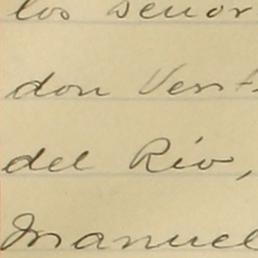 los señor
don Vent
del Río,
Manuel